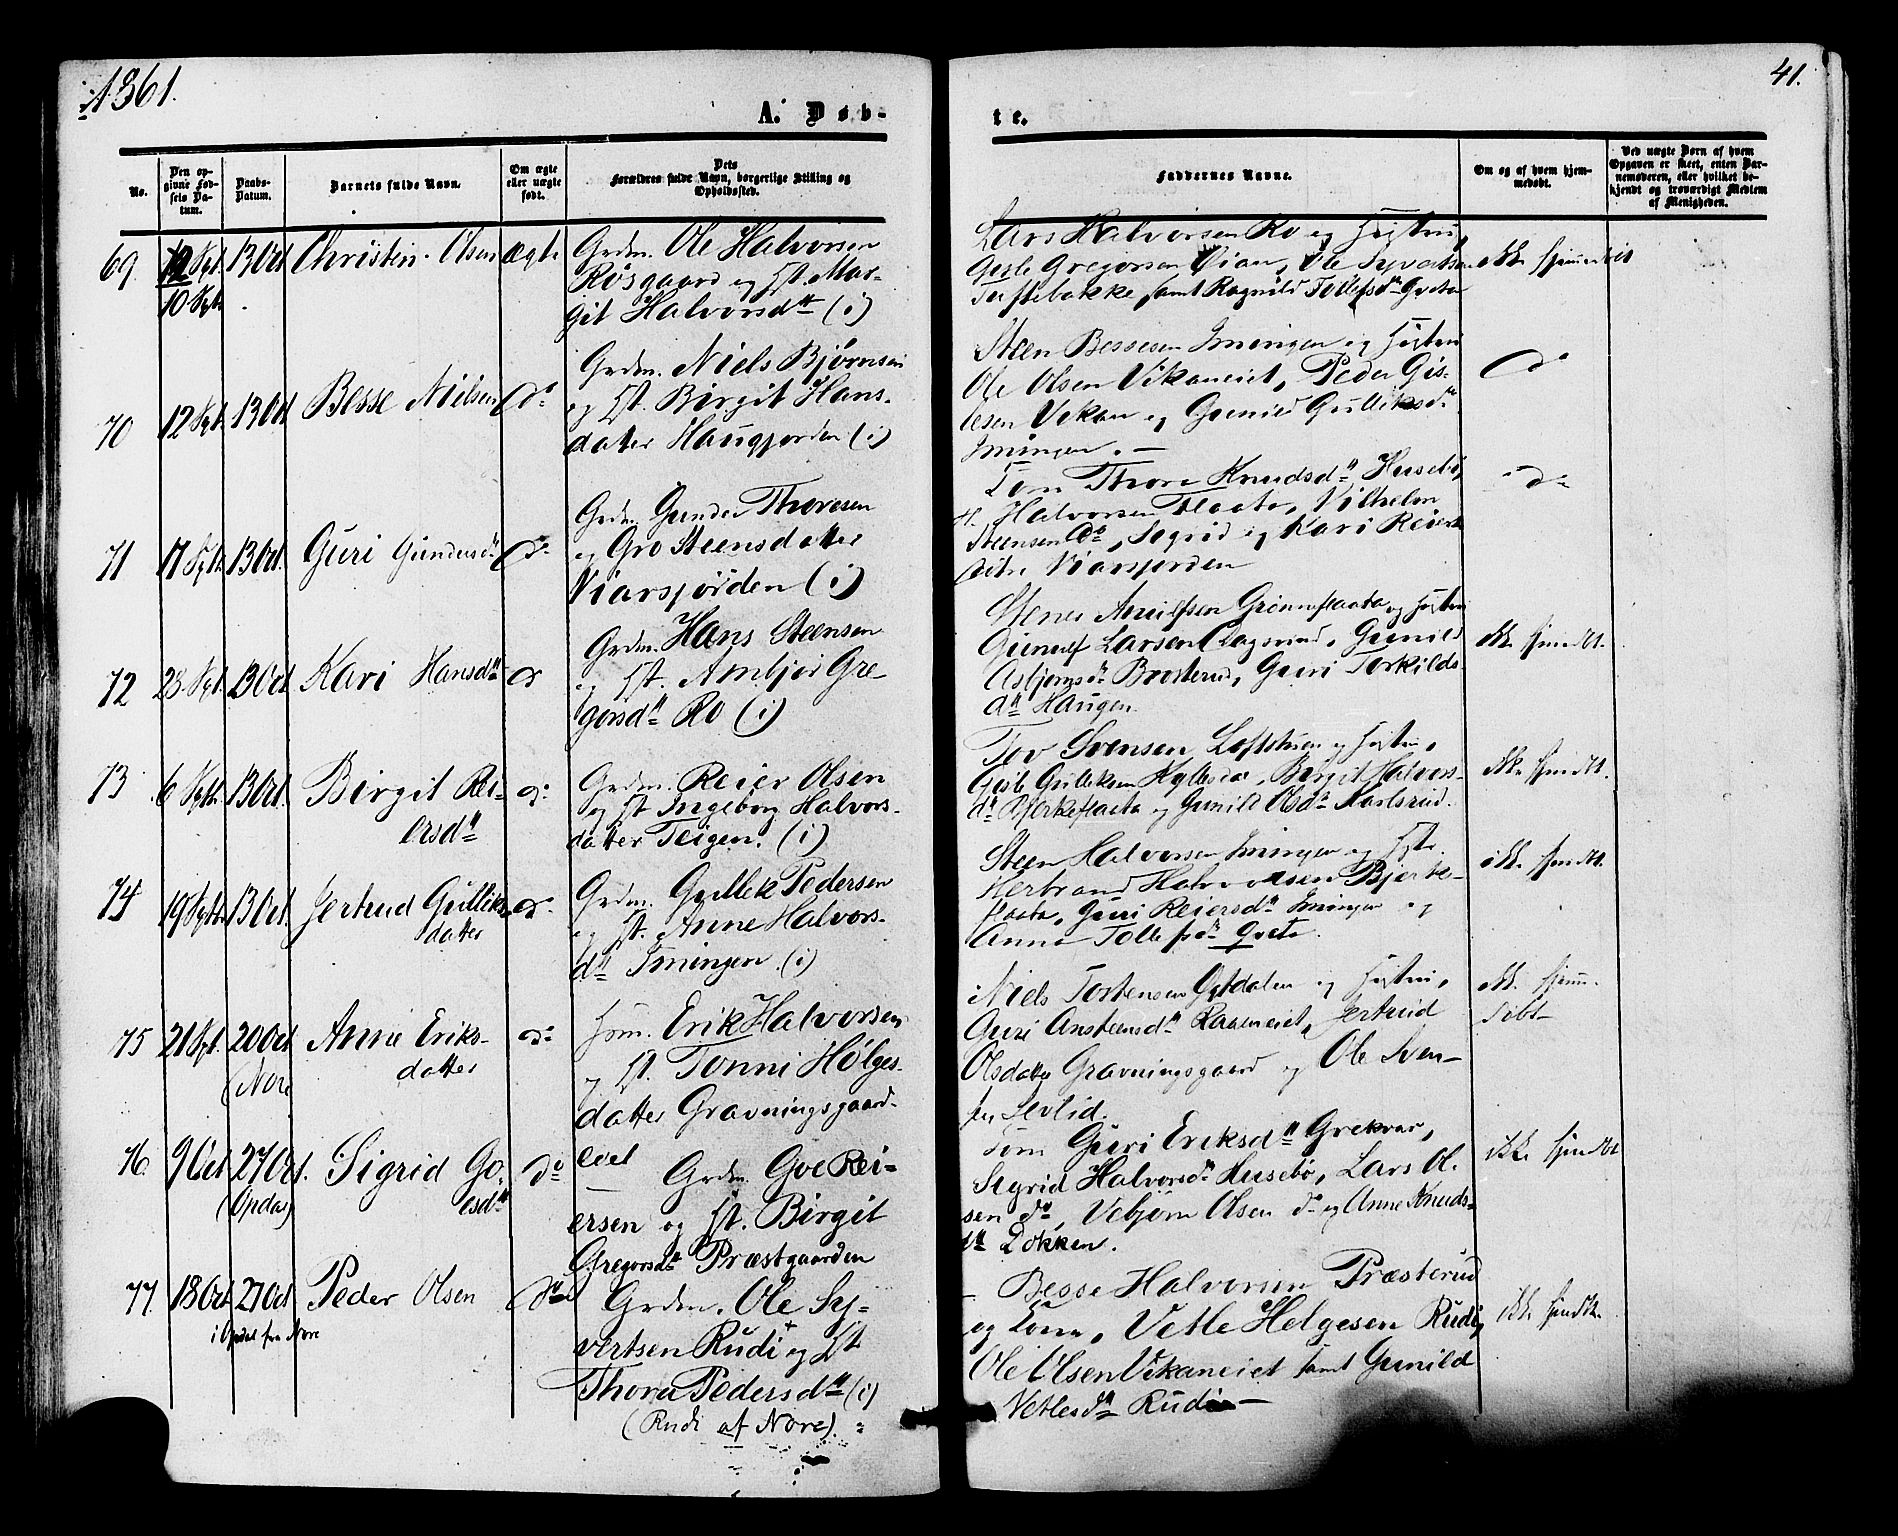 1861.
41.
A. Døb-
te.
No.
Den op-
givne Fød-
sels Da-
tum.
Daabs-
Datum.
Barnets fulde Navn.
Om ægte
eller uægte
født.
Dets
Forældres fulde Navn, borgerlige Stilling og
Opholdssted.
Faddernes Navne.
Om og af hvem hjem-
medøbt.
Ved uægte Børn af hvem
Opgaven er skeet, enten Bar-
nemoderen, eller hvilket be-
kjendt og troværdigt Medlem
af Menigheden.
69. 12 Spt. 13 Oct Christin Olsen ægte
10 Spt
Grdm. Ole Halvorsen
Rosgaard og Hst. Mar-
git Halvorsdtt (i)
Lars Halvorsen Ro og Hustru,
Gisle Gregorsen
Tuftebakke samt Ragnild Tollefsdtr Gvota
70 12 Spt. 13 Oct Besse Nielsen do
Grdm. Niels Bjørnsen
og Hst. Birgit Hans-
datter Haugjorden (i)
Steen Bessesen Imingen og Hustru
Ole Olsen Vikaneiet, Peder Gis-
lesen Vekan og Gunild Gulliksdtr
Imingen. -
do
71 17 Spt. 13 Oct. Guri Gundersdtr do
Grdm. Gunder Thoresen
og Gro Steensdatter
Viarsjorden (i)
Tom Thore Knudsdtr Husebø,
H. Halvorsen Flaata, Vilhelm
Steensen do, Segrid og Kari Reiers
døtre Viarsjorden
do
72 28 Spt. 13 Oct Kari Hansdtr do
Grdm. Hans Steensen
og Hst. Ambjør Gre-
gorsdtr Ro (i)
Grønneflaata og Hustru
Gunulf Larsen Dagsrud, Gunild
Asbjørnsdtr Brosterud, Guri Torkilds
dtr Haugen.
ikke hjemdbt.
73 6 Spt. 13 Oct. Birgit Rei-
ersdtr do
Grdm. Reier Olsen
og Hst Ingeborg Halvors-
datter Teigen. (i)
Tov Svensen Loftstuen og Hustru,
Gisle Gulleksen Myllesdal, Bergit Halvors-
dtr Bjerkeflaata og Gunild Olsdtr Karlsrud.
ikke hjemdbt.
74 19 Septb 13 Oct. Jertrud Gulliks-
datter do
Grdm. Gullek Pedersen
og Hst. Anne Halvors-
dtr Imingen. (i)
Steen Halvorsen Imingen og Hustr.
Herbrand Halvorsen Bjerke-
flaata, Guri Reiersdtr Imingen og
Anne Tollefsdtr Qveta.
ikke hjemdbt.
75 21 Spt. 20 Oct Anne Eriks-
(Nore datter do
Huusm. Erik Halvorsen
og Hst. Tonni Holges-
datter Gravningsgaard-
eiet
Niels Tostensen og Hustru,
Guri Ansteensdtr Raaeneiet, Jertrud
Olsdatter Gravningsgaard og Ole Sven-
sen Sevlid.
ikke hjem-
døbt
76. 9 Oct 27 Oct. Sigrid Go-
(Opdal) esdtr do
Grdm. Goe Rei-
ersen og Hst. Birgit
Gregorsdtr Præstgaarden
Tom Guri Eriksdtr Grekvar,
Sigrid Halvorsdtr Husebø, Lars Ol-
sen do, Vebjørn Olsen do og Anne Knuds-
dtr Lokken.
ikke hjemdbt
77. 18 Oct 27 Oct Peder Olsen do
i Opdal fra Nore
Grdm. Ole Sy-
vertsen Rudi og Hst
Thora Pedersdtr (i)
(Rudi af Nore).
Besse Halvorsen Præsterud
og Kona, Vetle Helgesen Rudi,
Ole Olsen Vikaneiet samt Gunild
Vetlesdtr Rudi -
ikke hjemdbt.